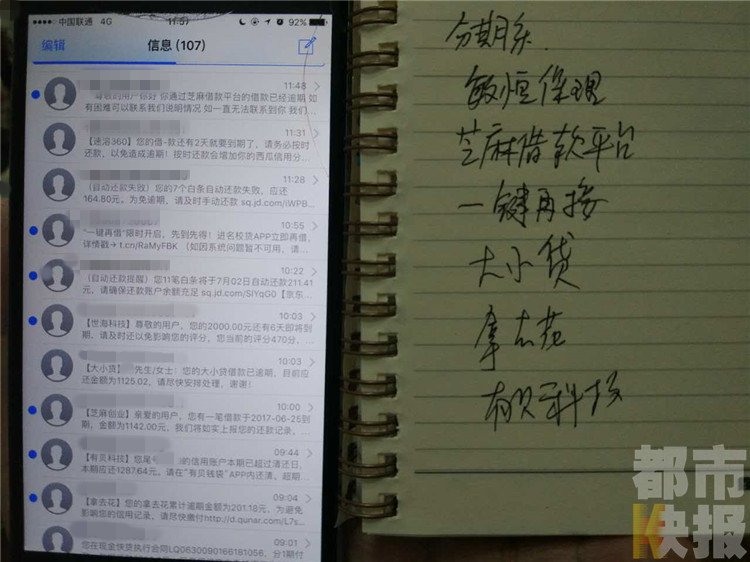 中国联通 4G 11:57 92%
编辑 信息 (107)
11:48
尊敬的用户你好 你通过芝麻借款平台的借款已经逾期 如
有困难可以联系我们说明情况 如一直无法联系到你 我们...
11:31
【速溶360】您的借-款还有2天就要到期了，请务必按时
还款，以免造成逾期！按时还款会增加你的西瓜信用分...
11:28
（自动还款失败）您的7个白条自动还款失败，应还
164.80元。为免逾期，请及时手动还款 sq.jd.com/iWPB...
10:55
“一键再借”限时开启，先到先得！进名校贷APP立即再借，
详情戳→ t.cn/RaMyFBK （如因系统问题暂不可用，请...
10:22
（自动还款提醒）您11笔白条将于7月02日自动还款211.41
元，请确保还款账户余额充足 sq.jd.com/SIYqG0【京东...
10:03
【世海科技】尊敬的用户，您的2000.00元还有6天即将到
期，请及时还以免影响您的评分，您当前的评分470分，...
10:03
【大小贷】先生/女士！您的大小贷借款已逾期，目前应
还金额为1125.02，请尽快安排处理，谢谢！
10:00
【芝麻创业】亲爱的用户，您有一笔借款于2017-06-25到
期，金额为1142.00元。我们将如实上报您的还款记录，...
09:44
【有贝科技】您尾号的信用账户本期已超过清还日，
本期应还1287.64元。请在“有贝钱袋”APP内还清，超期...
09:04
【拿去花】您的拿去花累计逾期金额为201.18元，为避免
影响您的信用记录，请尽快缴付http://d.qunar.com/L7s...
09:01
您在现金快贷执行合同LQ0630090166181056，分1期付
分期乐
敏恒保理
芝麻借款平台
一键再接
大小贷
拿去花
有贝科技
都市
快报